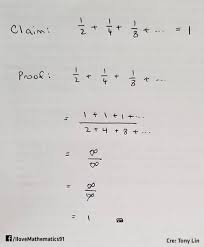 Claim: 1/2 + 1/4 + 1/8 + ... = 1
Proof: 1/2 + 1/4 + 1/8 + ...
= (1 + 1 + 1 + ...)/(2 + 4 + 8 + ...)
= ∞/∞
= ∞/∞
= 1
/IloveMathematics91 Cre: Tony Lin